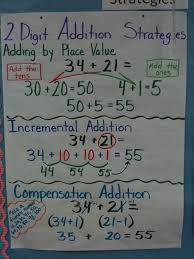 Strategies
2 Digit Addition Strategies
Adding by Place Value
Add the tens
34 + 21 =
Add the ones
30 + 20 = 50 4 + 1 = 5
50 + 5 = 55
Incremental Addition
34 + 21 =
34 + 10 + 10 + 1 = 55
44 54 55
Compensation Addition
34 + 21 =
(34+1) (21-1)
35 + 20 = 55